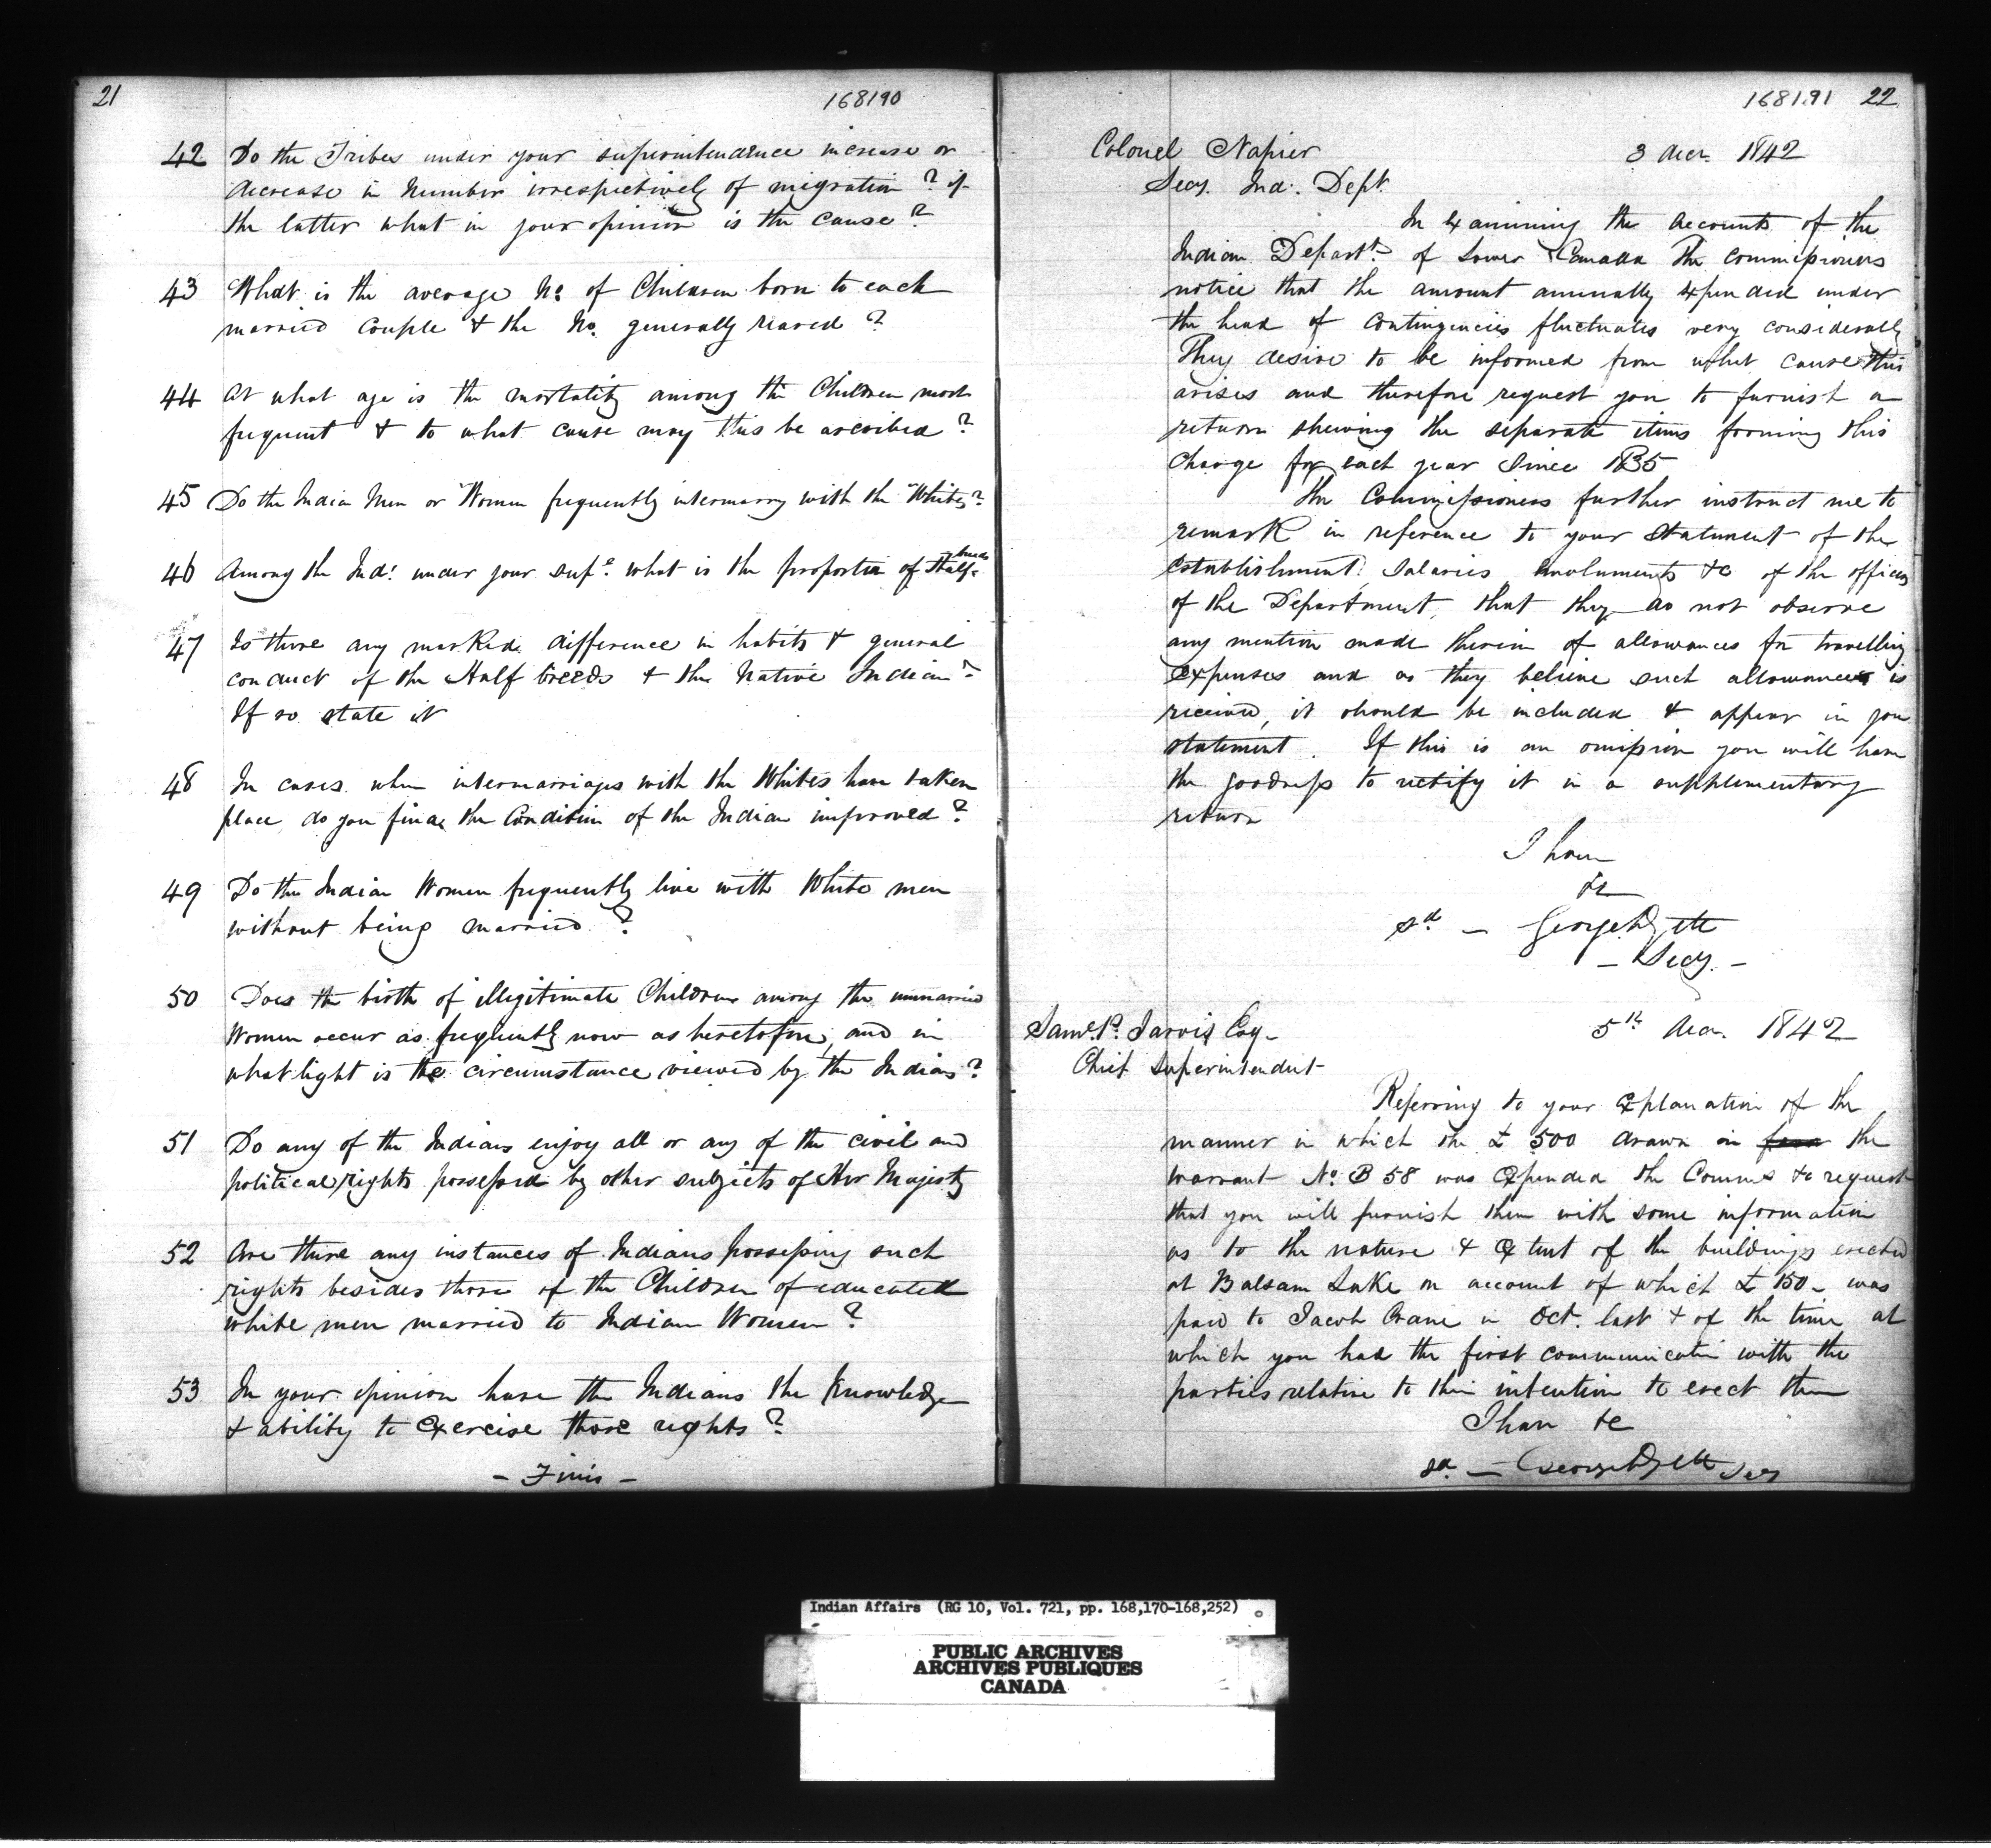 21
168190
42 Do the Tribes under your superintendence increase or
decrease in Number irrespectively of migration? if
the latter what in your opinion is the cause?
43 What is the average No. of Children born to each
married couple & the No. generally reared?
44 At what age is the mortality among the Children most
frequent & to what cause may this be ascribed?
45 Do the Indian Men or Women frequently intermarry with the Whites?
46 Among the Inds. under your supe. what is the proportion of Half breeds
47 Is there any marked difference in habits & general
conduct of the Half breeds & the Native Indian?
If so state it
48 In cases when intermarriages with the Whites have taken
place, do you find the Condition of the Indian improved?
49 Do the Indian Women frequently live with White men
without being married?
50 Does the birth of illegitimate Children among the unmarried
Women occur as frequently now as heretofore, and in
what light is the circumstance viewed by the Indians?
51 Do any of the Indians enjoy all or any of the civil and
political rights possessed by other subjects of Her Majesty
52 Are there any instances of Indians possessing such
rights besides those of the Children of educated
white men married to Indian Women?
53 In your opinion have the Indians the Knowledge
& ability to exercise those rights?
- Finis -
168191 22
Colonel Napier 3 Decr. 1842
Secy. Ind. Dept.
In examining the Accounts of the
Indian Departt. of Lower Canada The Commissioners
notice that the amount annually expended under
the head of Contingencies fluctuates very considerably
They desire to be informed from what cause this
arises and therefore request you to furnish a
return shewing the separate items forming this
Charge for each year since 1835
The Commissioners further instruct me to
remark in reference to your statement of the
Establishment Salaries emoluments &c of the officers
of the Department, that they do not observe
any mention made therein of allowances for travelling
expenses and as they believe such allowance is
received, it should be included & appear in your
statement. If this is an omission you will have
the goodness to rectify it in a supplementary
return
I have
&c
sd - George
- Secy. -
Saml. P. Jarvis Esq. 5th Decr. 1842
Chief Superintendent
Referring to your explanation of the
manner in which the £ 500 drawn in the
warrant No. B 58 was expended the Comms &c request
that you will furnish them with some information
as to the nature & extent of the buildings erected
at Balsam Lake on account of which £ 150 - was
paid to Jacob Crane in Oct. last & of the time at
which you had the first communication with the
parties relative to their intention to erect them
I have &c
sd - George Secy
Indian Affairs (RG 10, Vol. 721, pp. 168,170-168,252)
PUBLIC ARCHIVES
ARCHIVES PUBLIQUES
CANADA